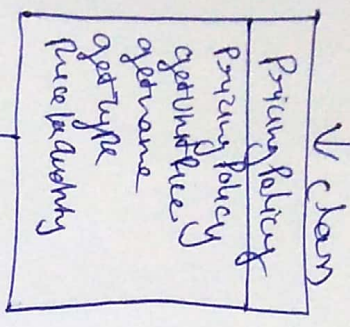 class
Pricing Policy
Pricing Policy
getUnitPrice
getname
getType